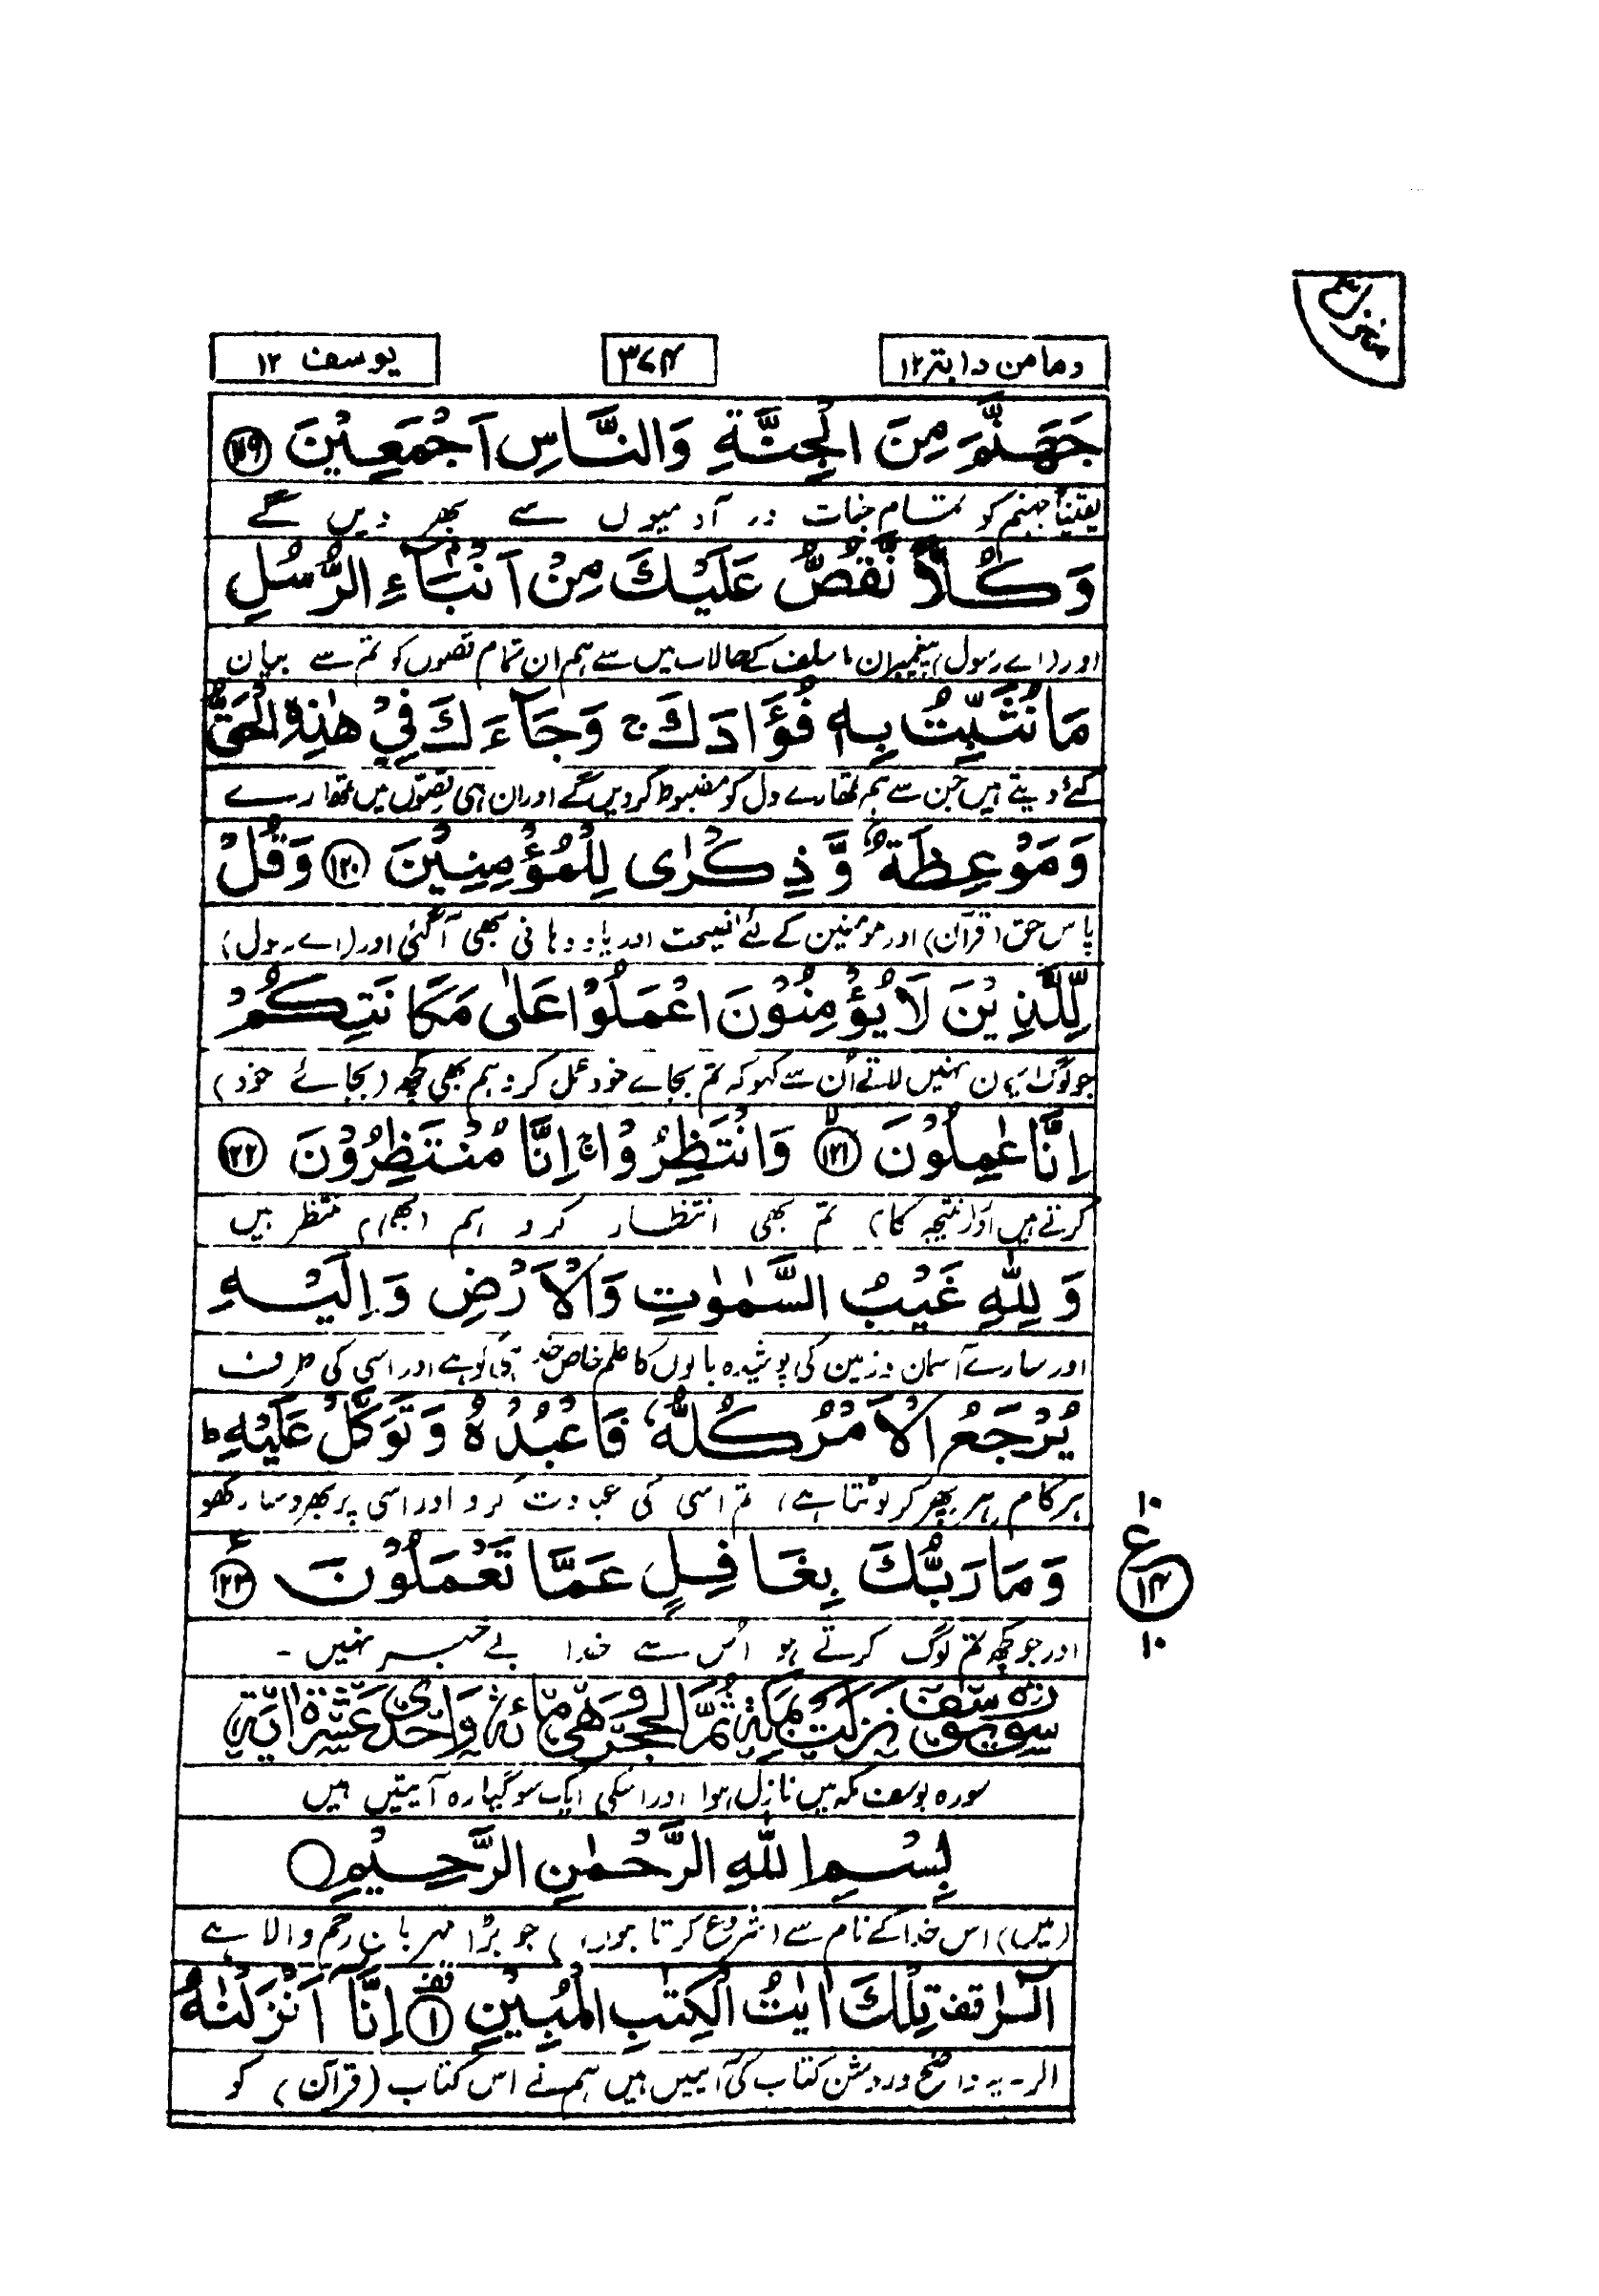 ومامن دابتر ۱۲
۳۷۴
یوسف ۱۲
جَهَنَّمَ مِنَ الْجِنَّةِ وَالنَّاسِ اَجْمَعِيْنَ ۱۱۹
یقیناً جہنم کو تمام جنات در آدمیوں سے بھر دیں گے
وَكُلًّا نَّقُصُّ عَلَيْكَ مِنْ اَنْۢبَآءِ الرُّسُلِ
اور (اے رسول) پیغمبران ما سلف کے حالات میں سے ہم ان تمام قصوں کو تم سے بیان
مَا نُثَبِّتُ بِهٖ فُؤَادَكَ ج وَجَآءَكَ فِيْ هٰذِهِ الْحَقُّ
کئے دیتے ہیں جن سے ہم تمھارے دل کو مضبوط کر دیں گے اور ان ہی قصّوں میں تمھارے
وَمَوْعِظَةٌ وَّذِكْرٰى لِلْمُؤْمِنِيْنَ ۱۲۰ وَقُلْ
پاس حق (قرآن) اور مومنین کے لئے نصیحت اور یاد دہانی بھی آ گئی اور (اے رسول)
لِّلَّذِيْنَ لَا يُؤْمِنُوْنَ اعْمَلُوْا عَلٰى مَكَانَتِكُمْ
جو لوگ ایمان نہیں لاتے اُن سے کہو کہ تم بجاے خود عمل کرو ہم بھی کچھ (بجائے خود)
اِنَّا عٰمِلُوْنَ ۱۲۱ وَانْتَظِرُوْا ج اِنَّا مُنْتَظِرُوْنَ ۱۲۲
کرتے ہیں اور (نتیجہ کا) تم بھی انتظار کرو ہم (بھی) منتظر ہیں
وَلِلّٰهِ غَيْبُ السَّمٰوٰتِ وَالْاَرْضِ وَاِلَيْهِ
اور سارے آسمان و زمین کی پوشیدہ باتوں کا علم خاص خدا ہی کو ہے اور اسی کی طرف
يُرْجَعُ الْاَمْرُ كُلُّهٗ فَاعْبُدْهُ وَتَوَكَّلْ عَلَيْهِ ط
ہر کام ہر پھر کر لوٹتا ہے، تم اسی کی عبادت کرو اور اسی پر بھروسا رکھو
وَمَا رَبُّكَ بِغَافِلٍ عَمَّا تَعْمَلُوْنَ ۱۲۳
۱۰
ع
۱۴
۱۰
اور جو کچھ تم لوگ کرتے ہو اُس سے خدا بے خبر نہیں ۔
سورة يوسف نزلت بمكة ثم الحجر وهي مائة واحدى عشرة اية
سورہ یوسف مکہ میں نازل ہوا اور اسکی ایک سو گیارہ آیتیں ہیں
بِسْمِ اللّٰهِ الرَّحْمٰنِ الرَّحِيْمِ
(میں) اس خدا کے نام سے (شروع کرتا ہوں) جو بڑا مہربان رحم والا ہے
الٓرٰ قف تِلْكَ اٰيٰتُ الْكِتٰبِ الْمُبِيْنِ ۱ قف اِنَّآ اَنْزَلْنٰهُ
الر - یہ واضح و روشن کتاب کی آیتیں ہیں ہم نے اس کتاب (قرآن) کو